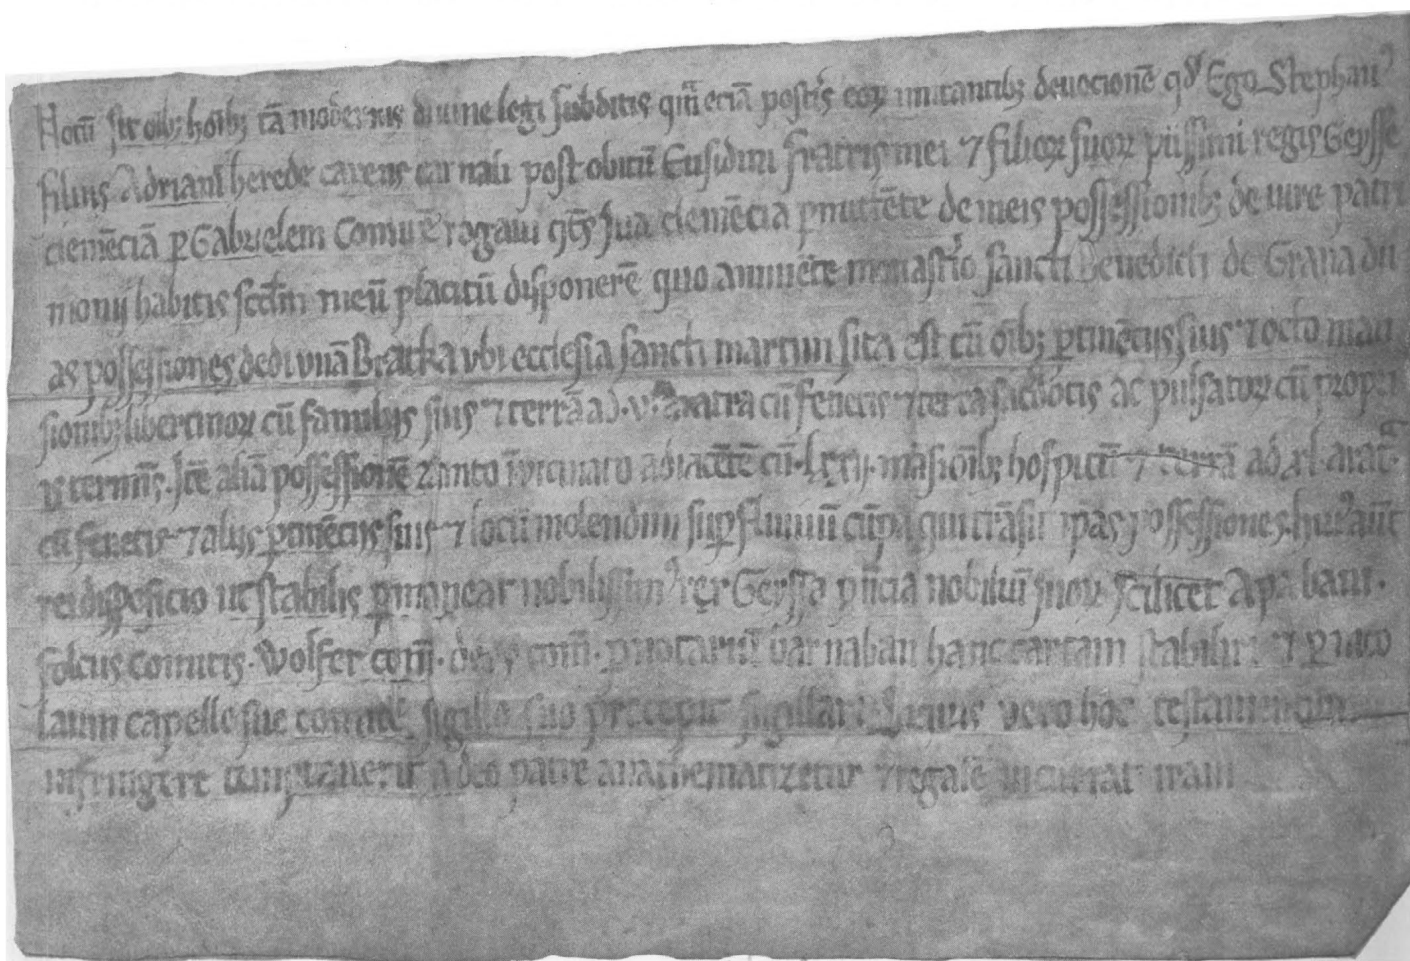 Notū sit oībꝫ hoībꝫ tā modernis diuine legi subditis qm̄ eciā postīs eoꝝ imitantibꝫ deuocionē qđ Ego Stephan᾿
filius Adriani herede carens carnali post obitū Eusidini fratris mei ⁊ filioꝝ suoꝝ piissimi regis Geysse
clemēciā ꝑ Gabrielem Comitē rogaui qt᾿s sua clemēcia ꝑmittēte de meis possessionibꝫ de iure patri
monij habitis scd̄m meū placitū disponerē quo annuēte monast᾿io sancti Benedicti de Grana du
as possessiones dedi vnā Bratka vbi ecclesia sancti martini sita est cū oībꝫ ꝑtinēcijs suis ⁊ octo man
sionibꝫ libertinoꝝ cū familijs suis ⁊ terrā ad .v. aratra cū fenetis ⁊ terra sac̄dotis ac pulsatoꝝ cū propri
is termīs. Itē aliā possessionē Zanto ī vicinato adiacētē cū .lxxij. māsioībꝫ hospitū ⁊ terrā ad xl arat᾿.
cū fenetis ⁊ alijs ꝑtinēcijs suis ⁊ locū molendini suꝑ fluuiū cūpa qui trāsit ip̄as possessiones. hui᾿ aūt
rei disposicio ut stabilis ꝑmaneat nobilissim᾿ rex Geyssa pn̄cia nobiliū suoꝝ scilicet Apa bani.
folcus comitis. Wolfer com̄. com̄. ꝑ notariū barnaban hanc cartam stabiliri ⁊ ꝑ nico
laum capelle sue comitē sigillo suo precepit sigillari. Siquis vero hoc testamentum
infringere temptauerit a deo patre anathematizetur ⁊ regalē incurrat iram